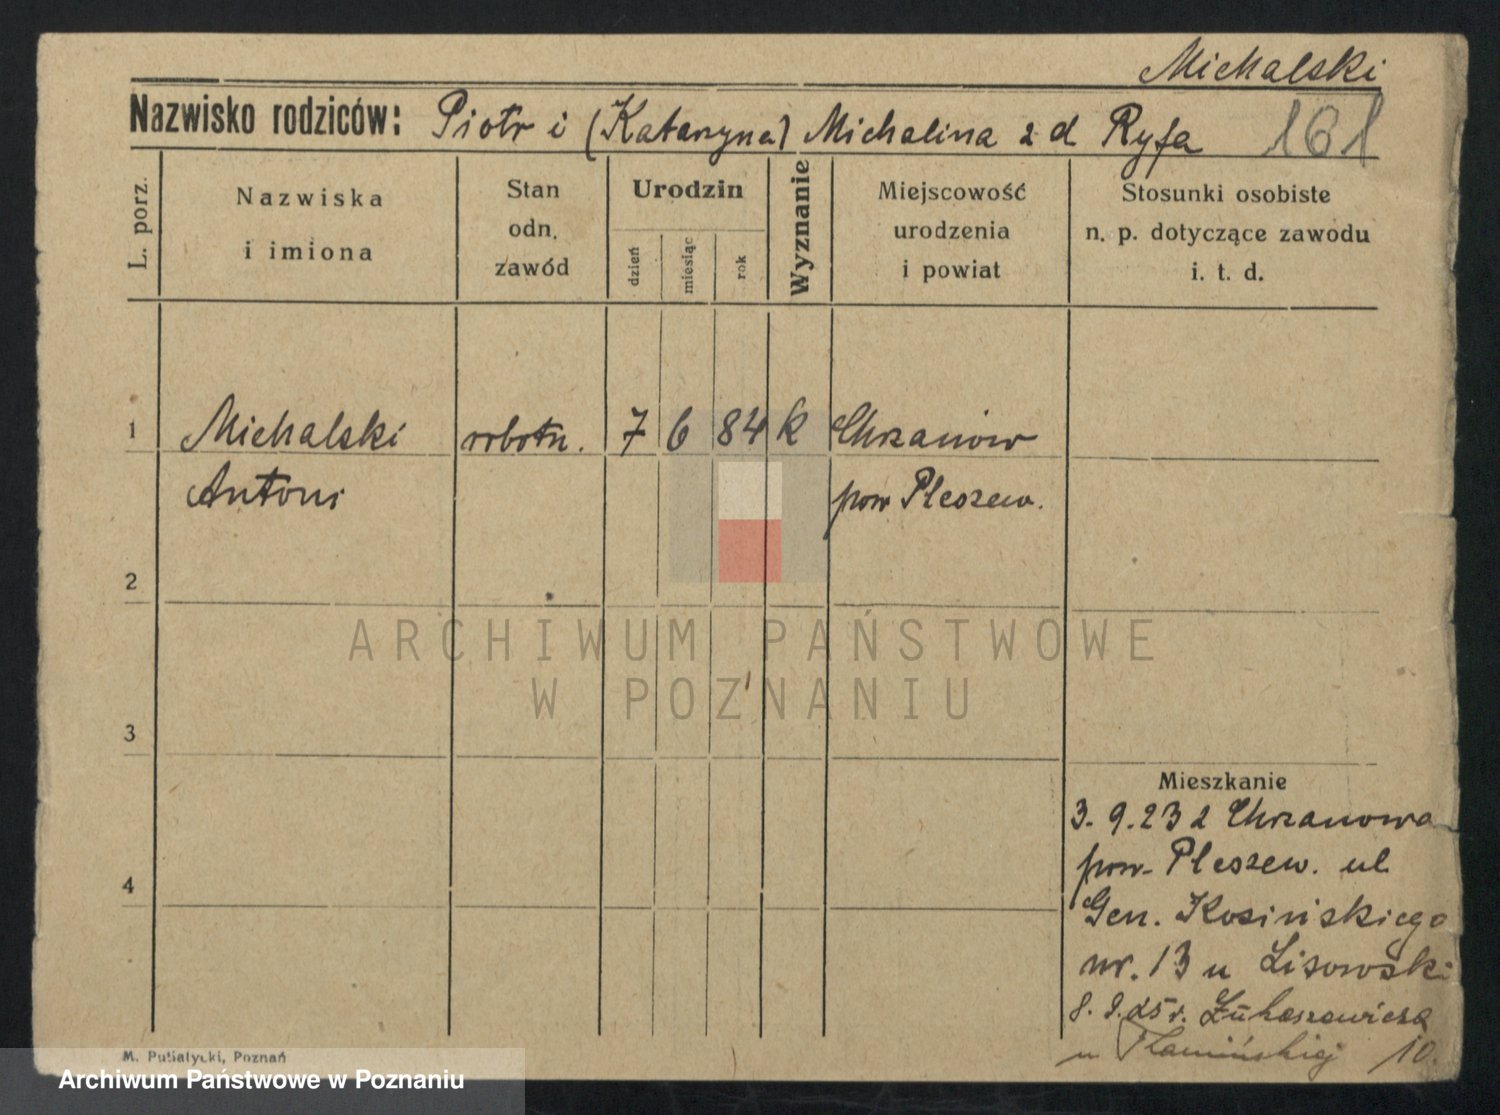 Michalski
Nazwisko rodziców: Piotr i (Katarzyna) Michalina z d Ryfa 161
L. porz.
Nazwiska
i imiona
Stan
odn.
zawód
Urodzin
dzień
miesiąc
rok
Wyznanie
Miejscowość
urodzenia
i powiat
Stosunki osobiste
n. p. dotyczące zawodu
i. t. d.
1 Michalski robotn. 7 6 84 k Chrzanów
Antoni pow Pleszew.
2
ARCHIWUM PAŃSTWOWE
W POZNANIU
3
Mieszkanie
3. 9. 23 z Chrzanowa
pow. Pleszew. ul
4
Gen. Kosińskiego
nr. 13 u Lisowski
8. 9. 25 r. Łukaszewicza
u 10.
M. Putiatycki, Poznań
Archiwum Państwowe w Poznaniu